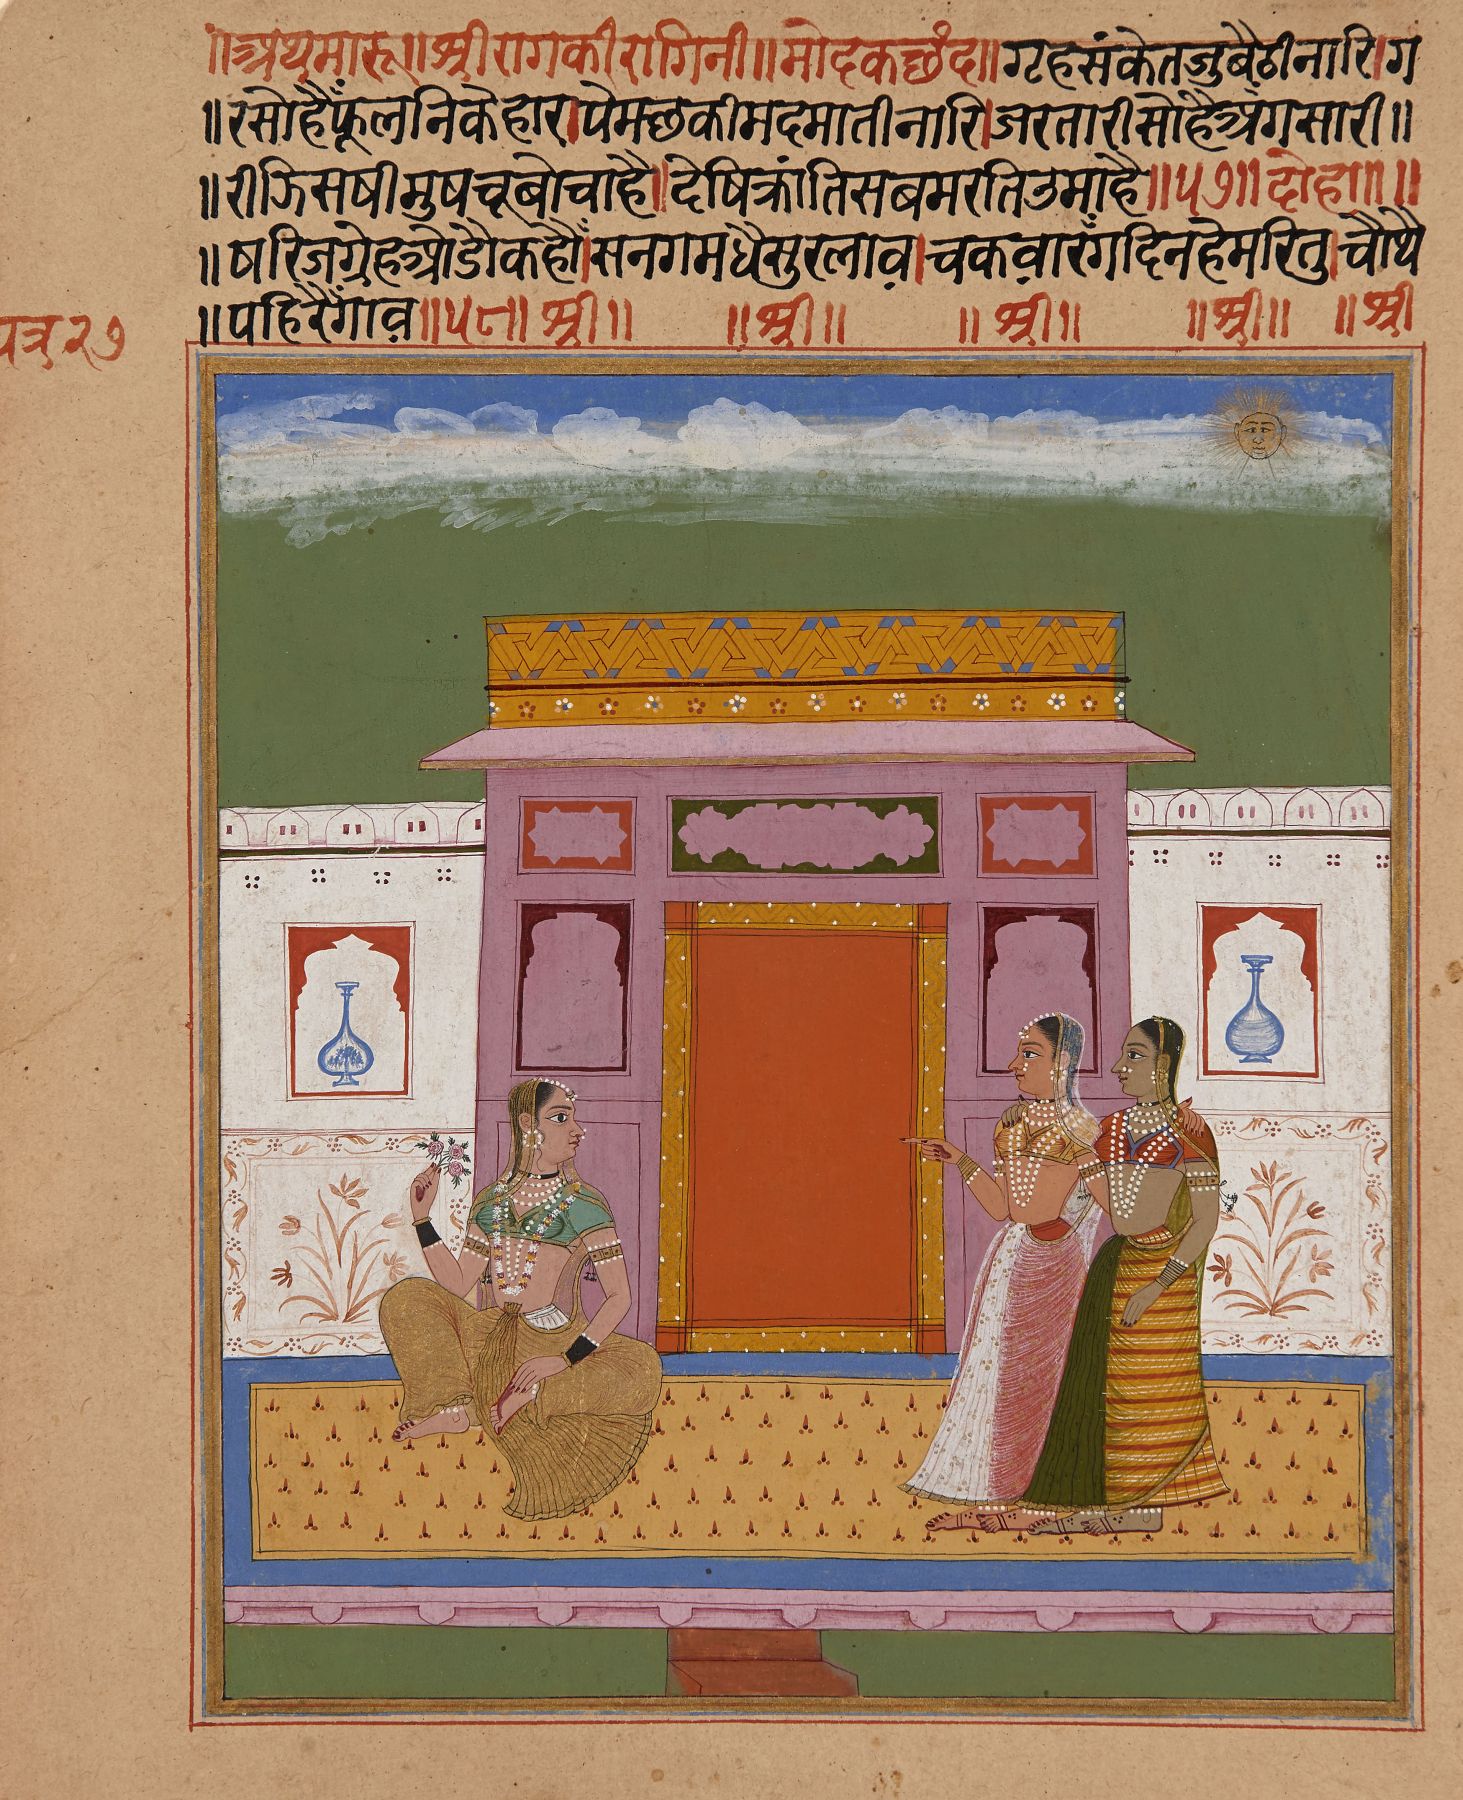 ॥अथ मारू॥श्रीरागकी रागिनी॥मोदक छंद॥गृह संकेत जु बैठी नारि।ग
॥रसोहैं फूलनि के हार।पेम छकी मदमाती नारि।जरतारी सोहै अंग सारी॥
॥रीझि सषी मुष चूबो चाहै॥देषि क्रांति सब मरति उमाहै॥५७॥दोहा॥॥
॥षरिज ग्रेह औडौ कहौं।स न ग म ध पै सुर लाव।चकवा रंग दिन हेम रितु।चौथै
॥पहिरैं गाव॥५८॥श्री॥ ॥श्री॥ ॥श्री॥ ॥श्री॥ ॥श्री
पत्र २७